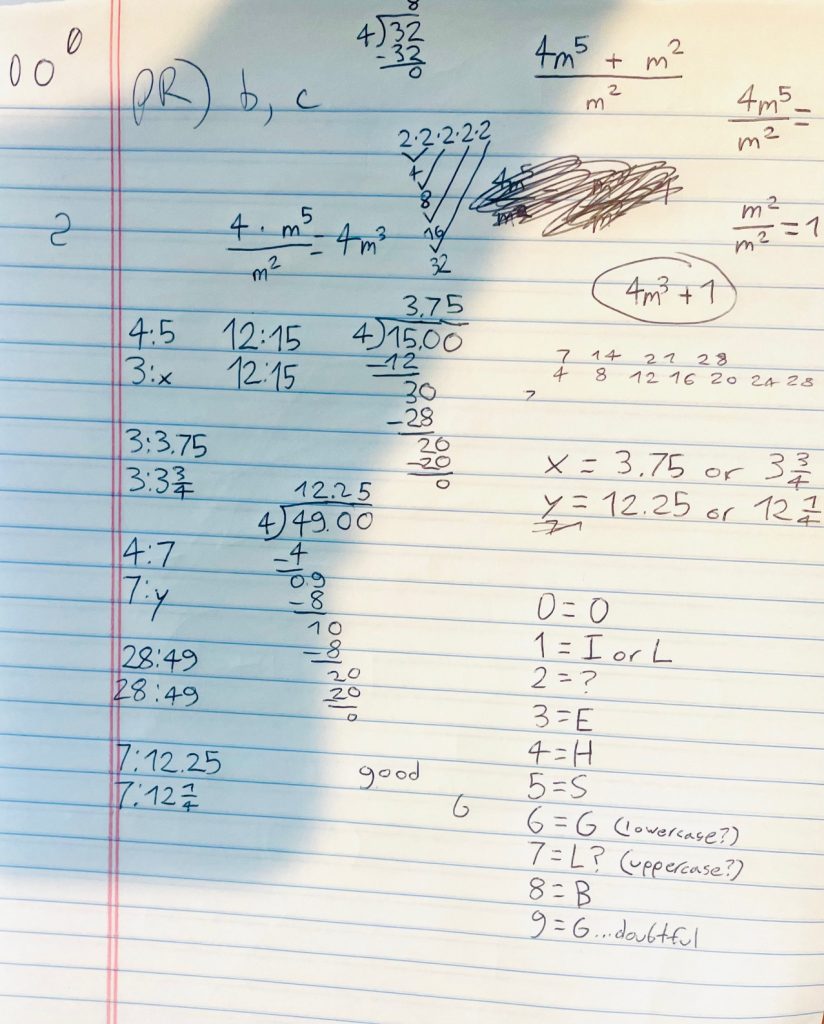 0 0 0
PR) b, c
8
4)32
-32
0
4m⁵ + m²
m²
4m⁵
m² =
2·2·2·2·2
4
8
16
32
m²
m² = 1
2
4 · m⁵
m² = 4m³
4m³ + 1
4:5 12:15
3:x 12:15
3.75
4)15.00
-12
30
-28
20
-20
0
7 14 21 28
4 8 12 16 20 24 28
3:3.75
3:3 3/4
x = 3.75 or 3 3/4
y = 12.25 or 12 1/4
12.25
4)49.00
-4
0.9
-8
10
-8
20
20
0
4:7
7:y
28:49
28:49
7:12.25
7:12 1/4
good
6
0=O
1=I or L
2=?
3=E
4=H
5=S
6=G (lowercase?)
7=L? (uppercase?)
8=B
9=G...doubtful